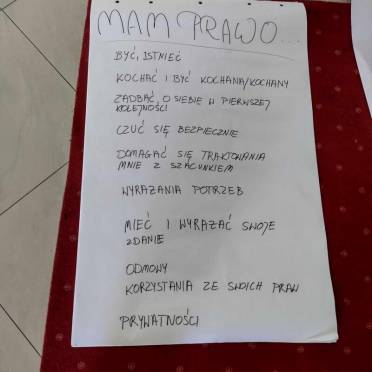 MAM PRAWO...
BYĆ, ISTNIEĆ
KOCHAĆ I BYĆ KOCHANĄ/KOCHANY
ZADBAĆ O SIEBIE W PIERWSZEJ
KOLEJNOŚCI
CZUĆ SIĘ BEZPIECZNIE
DOMAGAĆ SIĘ TRAKTOWANIA
MNIE Z SZACUNKIEM
WYRAŻANIA POTRZEB
MIEĆ I WYRAŻAĆ SWOJE
ZDANIE
ODMOWY
KORZYSTANIA ZE SWOICH PRAW
PRYWATNOŚCI